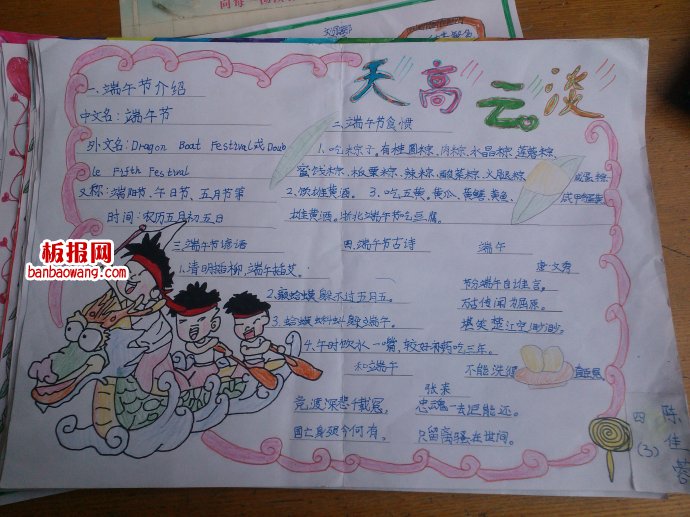 天高云淡
一、端午节介绍
中文名：端午节
外文名：Dragon Boat Festival或Doub
le Fifth Festival
又称：端阳节、午日节、五月节等
时间：农历五月初五日
二、端午节食惯
1、吃粽子。有桂圆粽、肉粽、水晶粽、莲蓉粽、
蜜饯粽、板栗粽、辣粽、酸菜粽、火腿粽、
咸蛋粽
2、饮雄黄酒。3、吃五黄。黄瓜、黄鳝、黄鱼、
咸鸭蛋黄
雄黄酒。浙北端午节吃豆腐。
三、端午节谚语
1、清明插柳，端午插艾。
2、癞蛤蟆躲不过五月五。
3、蛤蟆蝌蚪躲端午。
4、午时饮水一嘴，较好补药吃三年。
四、端午节古诗
端午
唐·文秀
节分端午自谁言，
万古传闻为屈原。
堪笑楚江空渺渺，
不能洗得
直臣冤
和端午
张耒
竞渡深悲千载冤，
忠魂一去讵能还。
国亡身殒今何有，
只留离骚在世间。
四
(3)
陈佳
板报网
banbaowang.com